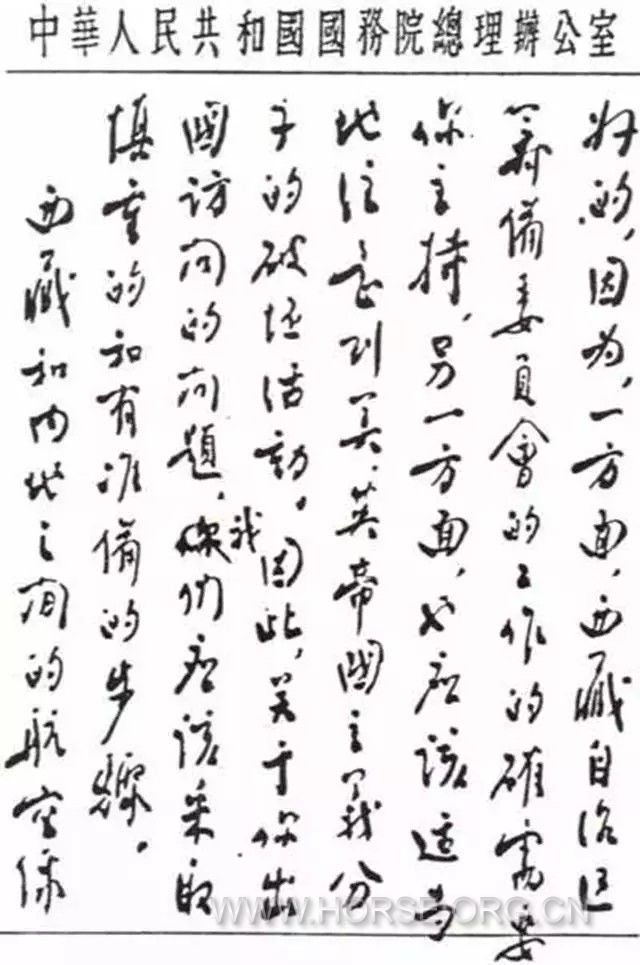 中華人民共和國國務院總理辦公室
好的,因为,一方面,西藏自治区
筹備委員會的工作的確需要
你主持,另一方面,也应该适当
地注意到美、英帝國主義分
子的破坏活動。因此,关于你出
國訪问的问題,我们应该采取
慎重的和有准備的步驟。
西藏和内地之间的航空線
WWW.HORSEORG.CN